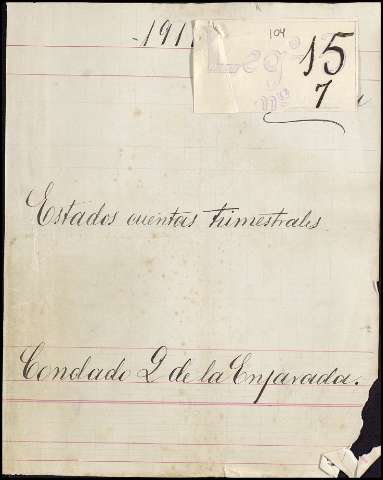 -191
104
15
7
Estados cuentas trimestrales.
Condado Q de la Enjarada.